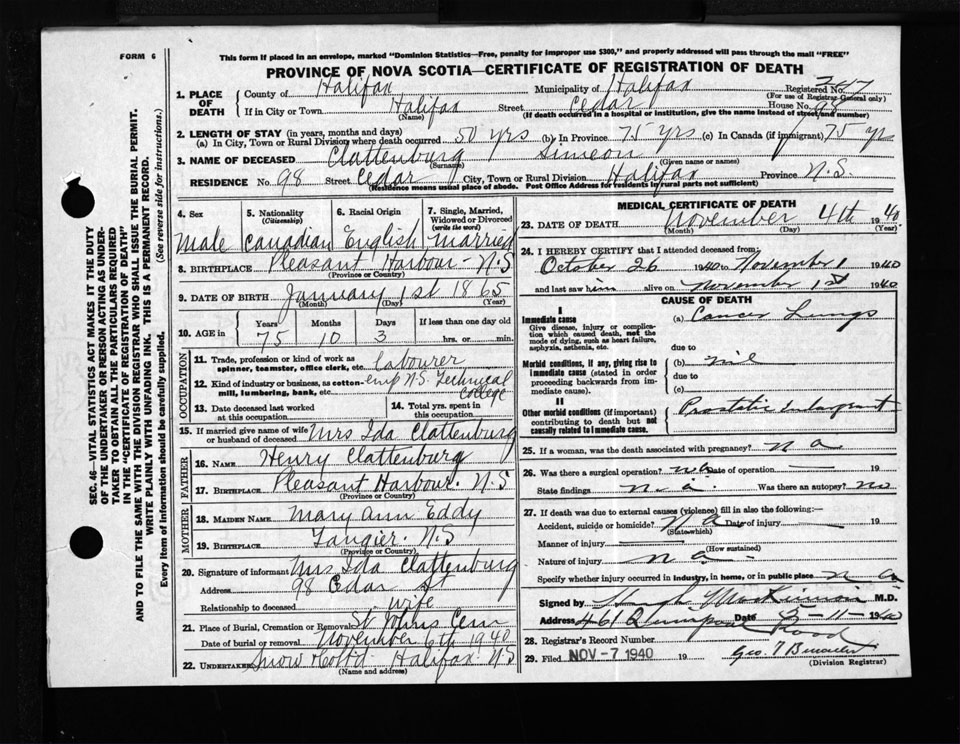 FORM 6
This form if placed in an envelope, marked "Dominion Statistics—Free, penalty for improper use $300," and properly addressed will pass through the mail "FREE"
PROVINCE OF NOVA SCOTIA—CERTIFICATE OF REGISTRATION OF DEATH
SEC. 46—VITAL STATISTICS ACT MAKES IT THE DUTY
OF THE UNDERTAKER OR PERSON ACTING AS UNDER-
TAKER TO OBTAIN ALL THE PARTICULARS REQUIRED
IN THE "CERTIFICATE OF REGISTRATION OF DEATH"
AND TO FILE THE SAME WITH THE DIVISION REGISTRAR WHO SHALL ISSUE THE BURIAL PERMIT.
WRITE PLAINLY WITH UNFADING INK. THIS IS A PERMANENT RECORD.
Every item of information should be carefully supplied. (See reverse side for instructions.)
1. PLACE OF DEATH
County of Halifax Municipality of Halifax Registered No. 347
(For use of Registrar-General only)
If in City or Town Halifax Street Cedar House No. 98
(Name) (If death occurred in a hospital or institution, give the name instead of street and number)
2. LENGTH OF STAY (in years, months and days)
(a) In City, Town or Rural Division where death occurred 50 yrs (b) In Province 75 yrs (c) In Canada (if immigrant) 75 yrs
3. NAME OF DECEASED Clattenburg Simeon
(Surname) (Given name or names)
RESIDENCE No. 98 Street Cedar City, Town or Rural Division Halifax Province N.S.
(Residence means usual place of abode. Post Office Address for residents in rural parts not sufficient)
4. Sex 5. Nationality (Citizenship) 6. Racial Origin 7. Single, Married, Widowed or Divorced (write the word)
Male Canadian English Married
8. BIRTHPLACE Pleasant Harbour - N.S
(Province or Country)
9. DATE OF BIRTH January 1st 1865
(Month) (Day) (Year)
10. AGE in Years Months Days If less than one day old
75 10 3 hrs. or min.
OCCUPATION
11. Trade, profession or kind of work as spinner, teamster, office clerk, etc. labourer
12. Kind of industry or business, as cotton-mill, lumbering, bank, etc. emp N.S. Technical College
13. Date deceased last worked at this occupation
14. Total yrs. spent in this occupation
15. If married give name of wife or husband of deceased Mrs Ida Clattenburg
FATHER
16. NAME Henry Clattenburg
17. BIRTHPLACE Pleasant Harbour. N.S
(Province or Country)
MOTHER
18. MAIDEN NAME Mary Ann Eddy
19. BIRTHPLACE Tangier. N.S
(Province or Country)
20. Signature of informant Mrs Ida Clattenburg
Address 98 Cedar St
Relationship to deceased wife
21. Place of Burial, Cremation or Removal St Johns Cem
Date of burial or removal November 6th 1940
22. UNDERTAKER Snow & Co Ltd Halifax N.S
(Name and address)
MEDICAL CERTIFICATE OF DEATH
23. DATE OF DEATH November 4th 1940
(Month) (Day) (Year)
24. I HEREBY CERTIFY that I attended deceased from:
October 26 1940 to November 1 1940
and last saw him alive on November 1st 1940
CAUSE OF DEATH
I
Immediate cause (a) Cancer Lungs
Give disease, injury or complication which caused death, not the mode of dying, such as heart failure, asphyxia, asthenia, etc.
due to
Morbid conditions, if any, giving rise to immediate cause (stated in order proceeding backwards from immediate cause).
(b) nil
due to
(c)
II
Other morbid conditions (if important) contributing to death but not causally related to immediate cause. Prostatic enlargement
25. If a woman, was the death associated with pregnancy? n a
26. Was there a surgical operation? no Date of operation — 19
State findings n. a. Was there an autopsy? no
27. If death was due to external causes (violence) fill in also the following:—
Accident, suicide or homicide? N.a Date of injury — 19
(State which)
Manner of injury —
(How sustained)
Nature of injury n a.
Specify whether injury occurred in industry, in home, or in public place n a
Signed by Hugh MacKinnon M.D.
Address 461 Quinpool Road Date 5-11-1940
28. Registrar's Record Number
29. Filed NOV -7 1940 19
(Division Registrar)